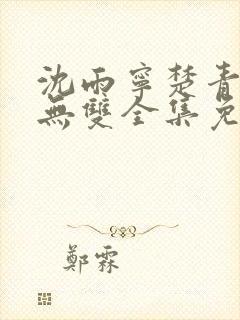 沈雨寧楚青
無雙全集免
鄭霖